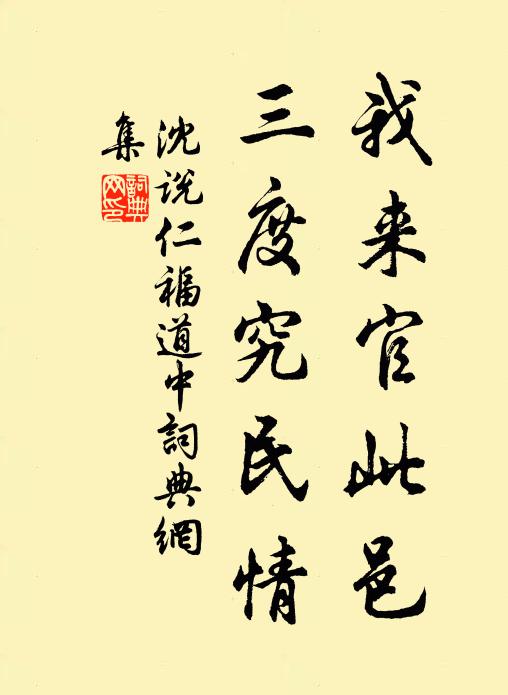 我来官此邑
三度究民情
沈说仁福道中詞典網
集
詞典网印